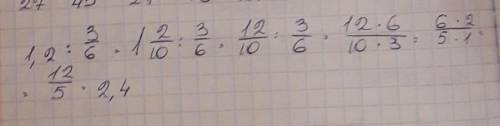 27 45 27
1,2 : 3/6 = 1 2/10 : 3/6 = 12/10 : 3/6 = 12·6/10·3 = 6·2/5·1 =
= 12/5 = 2,4